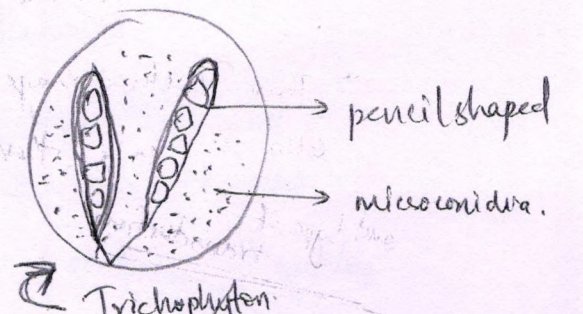 pencil shaped
microconidia.
Trichophyton.